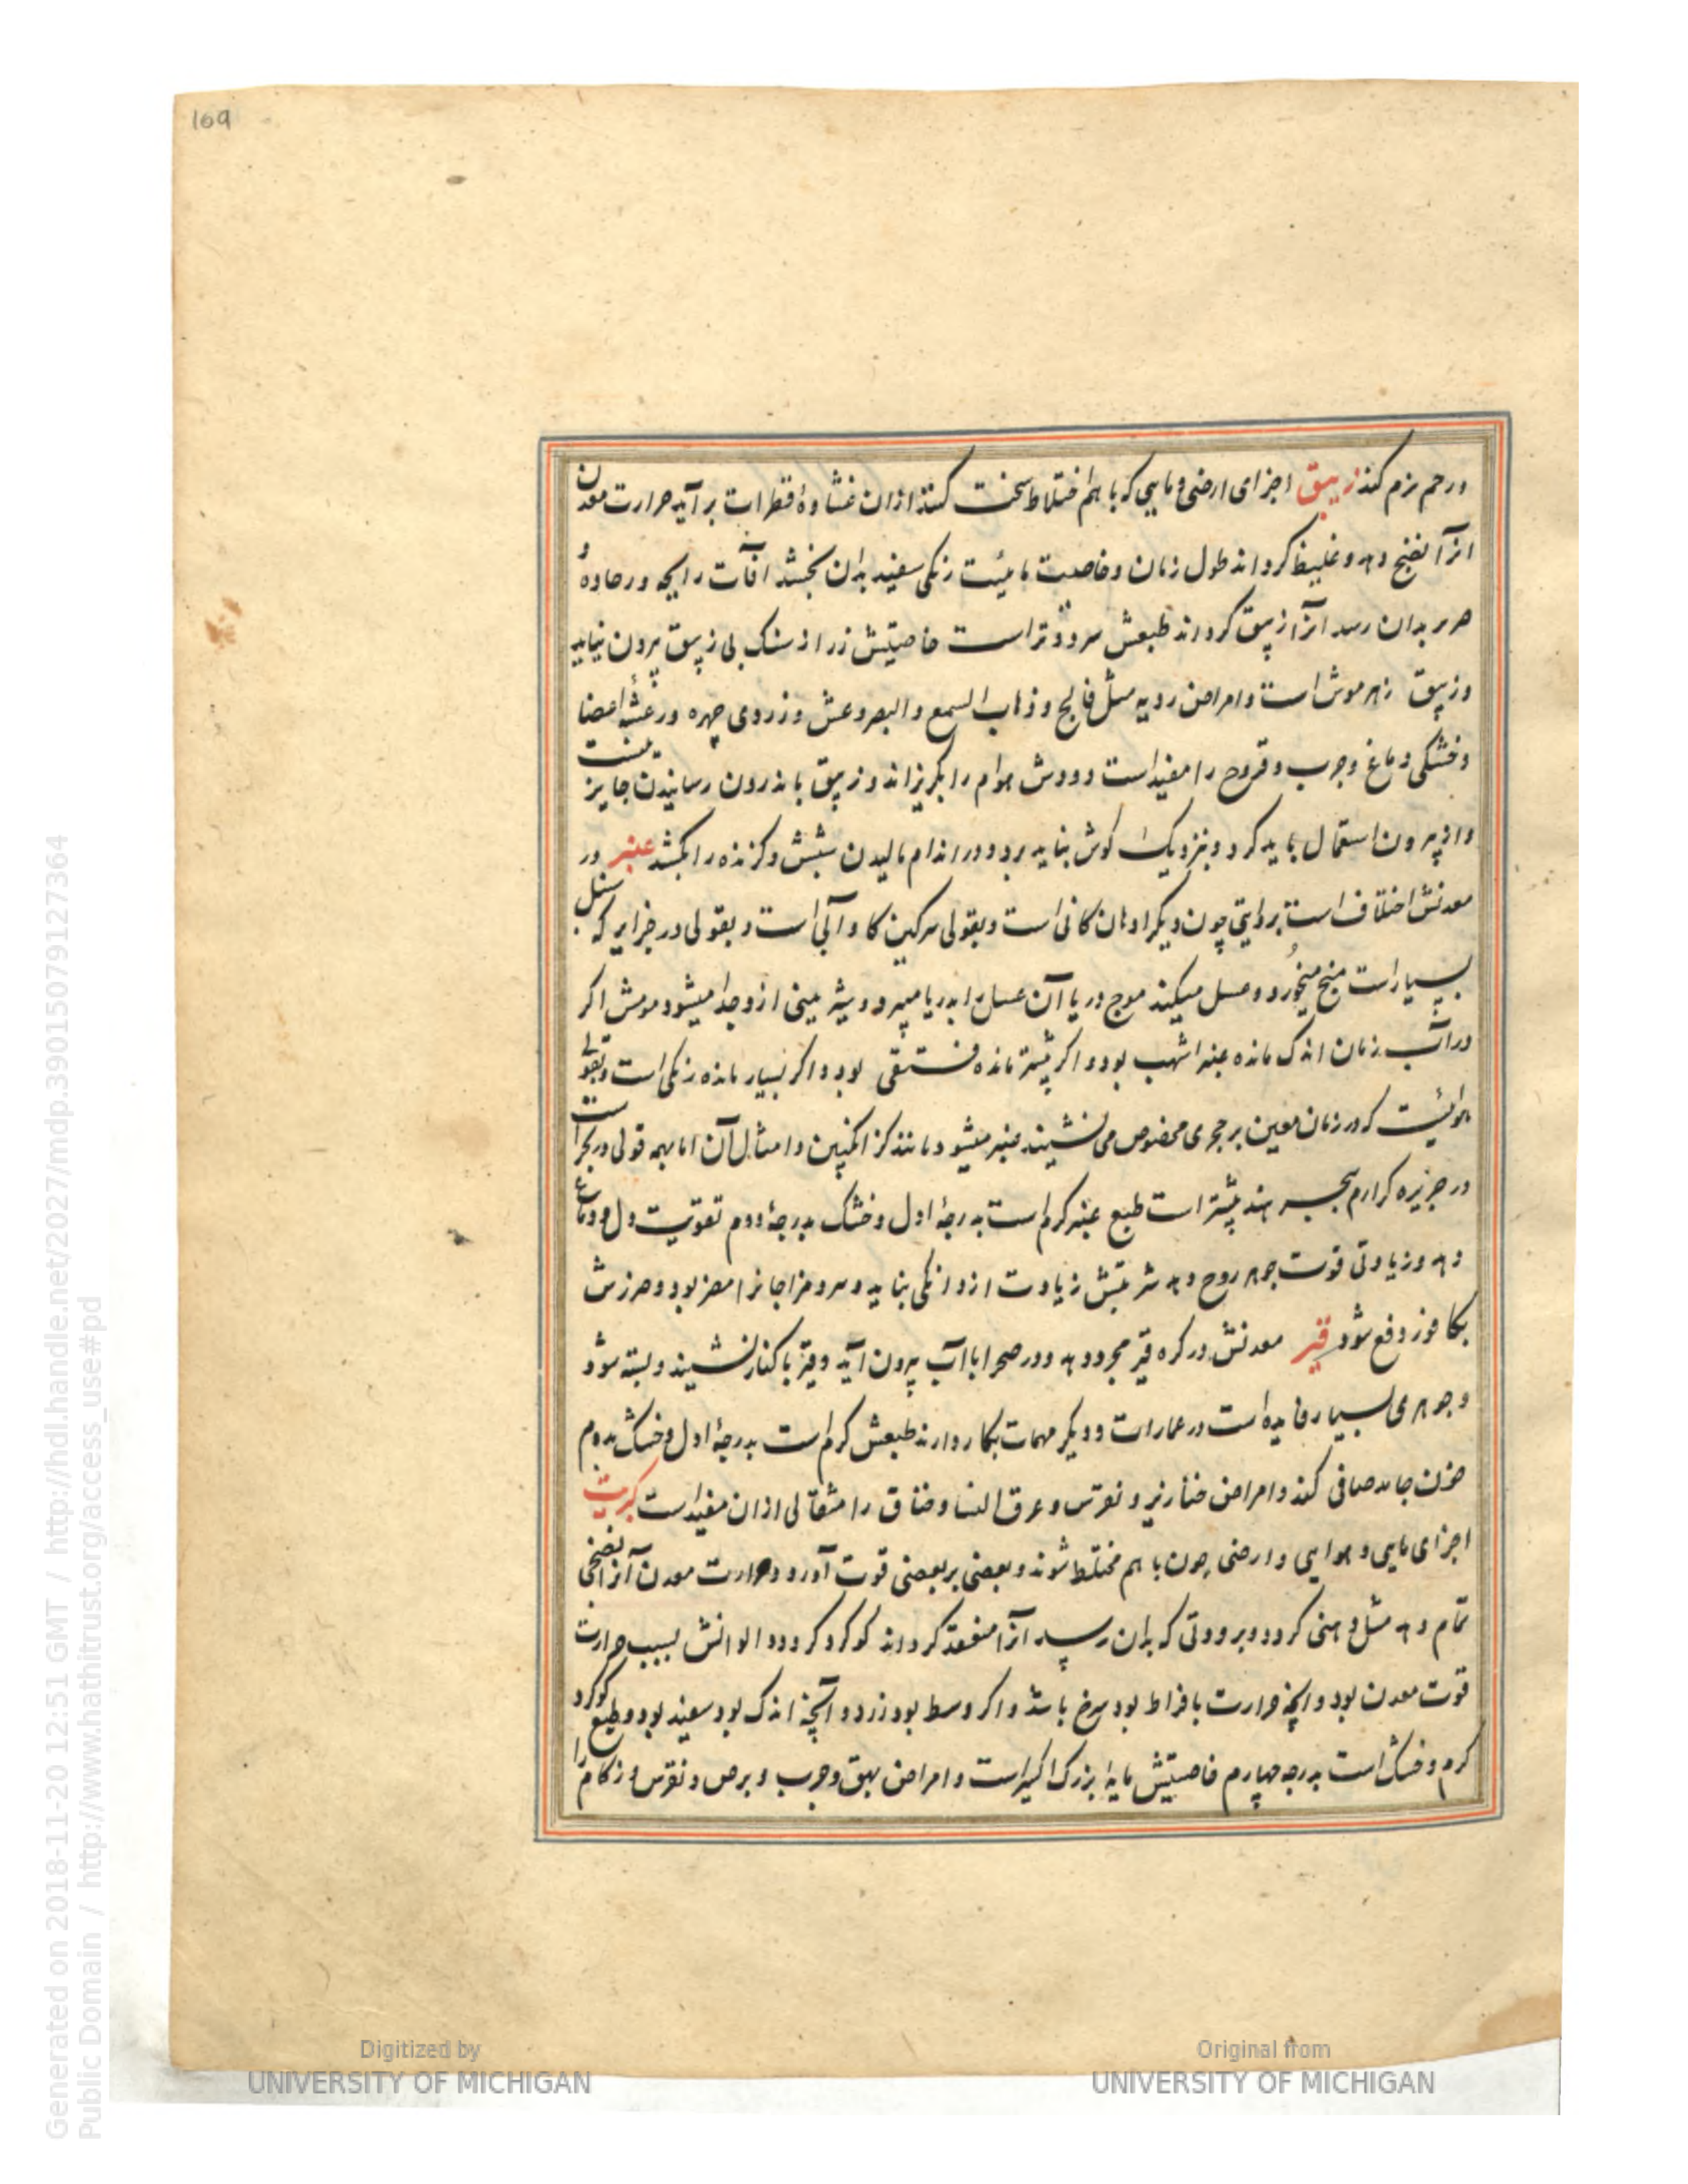 169
ورحم نرم کند زیبق اجزای ارضی و مایی که با هم اختلاط سخت کنند ازان غشاوهٔ قطرات برآید حرارت معدن
انرا نضج دهد و غلیظ کرداند طول زمان و خاصیت مائیت رنکی سفید بدان بخشد افات رایحه ورحاوهٔ و
هر بر بدان رسد انرا زیبق کرداند طبعش سرد و تر است خاصیتش زر از سنک بی زیبق بیرون نیاید
و زیبق زهر موش است و امراض ردیه مثل فالج و ذهاب السمع و البصر و غش و زردی چهره و رعشهٔ اعضا
و خشکی دماغ و جرب و قروح را مفید است و دودش هوام را بکریزاند و زیبق باندرون رسانیدن جایز نیست
و از بیرون استعمال باید کرد و بنزدیک کوش نباید برد و در اندام مالیدن شپش و کزنده را بکشد عنبر در
معدنش اختلاف است بروایتی چون دیکر ادهان کانی است و بقولی سرکین کاو آبی است و بقولی در جزایر که سنبل
بسیار است منج میخورد و عسل میکند موج دریا آن عسل را بدریا میبرد و بیشتر مینی ازو جدا میشود مومش اکر
در آب زمان اندک مانده عنبر اشهب بود و اکر بیشتر مانده فستقی بود و اکر بسیار مانده زنکی است و بقولی
هوائیست که در زمان معین بر حجری مخصوص می نشیند عنبر میشود مانند کزانکبین و امثال آن اما بهمه قولی در بحر است
در جزیره کرارم بحر هند بیشتر است طبع عنبر کرم است بدرجهٔ اول و خشک بدرجهٔ دوم تقویت دل و دماغ
دهد و زیادتی قوت جوهر روح دهد شربتش زیادت از دانکی نباید و سرد مزاجانرا مضر بود و ضررش
بکافور دفع شود قیر معدنش در کره قیر مجرد دهد و در صحرا با آب بیرون آید و قیر با کنار نشیند و بسته شود
و جوهری بسیار فایده است در عمارات و دیکر مهمات بکار دارند طبعش کرم است بدرجهٔ اول و خشک بدوم
خون جامد صافی کند و امراض خنازیر و نقرس و عرق النسا و خناق را مثقالی ازان مفید است کبریت
اجزای مایی و هوایی و ارضی چون با هم مختلط شوند و بعضی بر بعضی قوت آورد و حرارت معدن آنرا نضجی
تمام دهد مثل دهنی کردد و برودتی که بدان رسد انرا منعقد کرداند کوکرد کردد و الوانش بسبب حرارت
قوت معدن بود و انچه حرارت بافراط بود سرخ باشد و اکر وسط بود زرد و آنچه اندک بود سفید بود و طبع کوکرد
کرم و خشک است بدرجه چهارم خاصیتش مایهٔ بزرک اکسیر است و امراض بهق و جرب و برص و نقرس و زکام را
Generated on 2018-11-20 12:51 GMT / http://hdl.handle.net/2027/mdp.39015079127364
Public Domain / http://www.hathitrust.org/access_use#pd
Digitized by
UNIVERSITY OF MICHIGAN
Original from
UNIVERSITY OF MICHIGAN